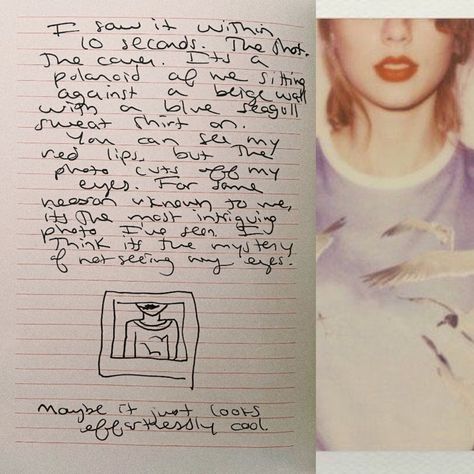 I saw it within
10 seconds. The shot.
The cover. It's a
polaroid of me sitting
against a beige wall
with a blue seagull
sweat shirt on.
You can see my
red lips, but the
photo cuts off my
eyes. For some
reason uknown to me,
it's the most intriguing
photo I've seen. I
think it's the mystery
of not seeing my eyes.
Maybe it just looks
effortlessly cool